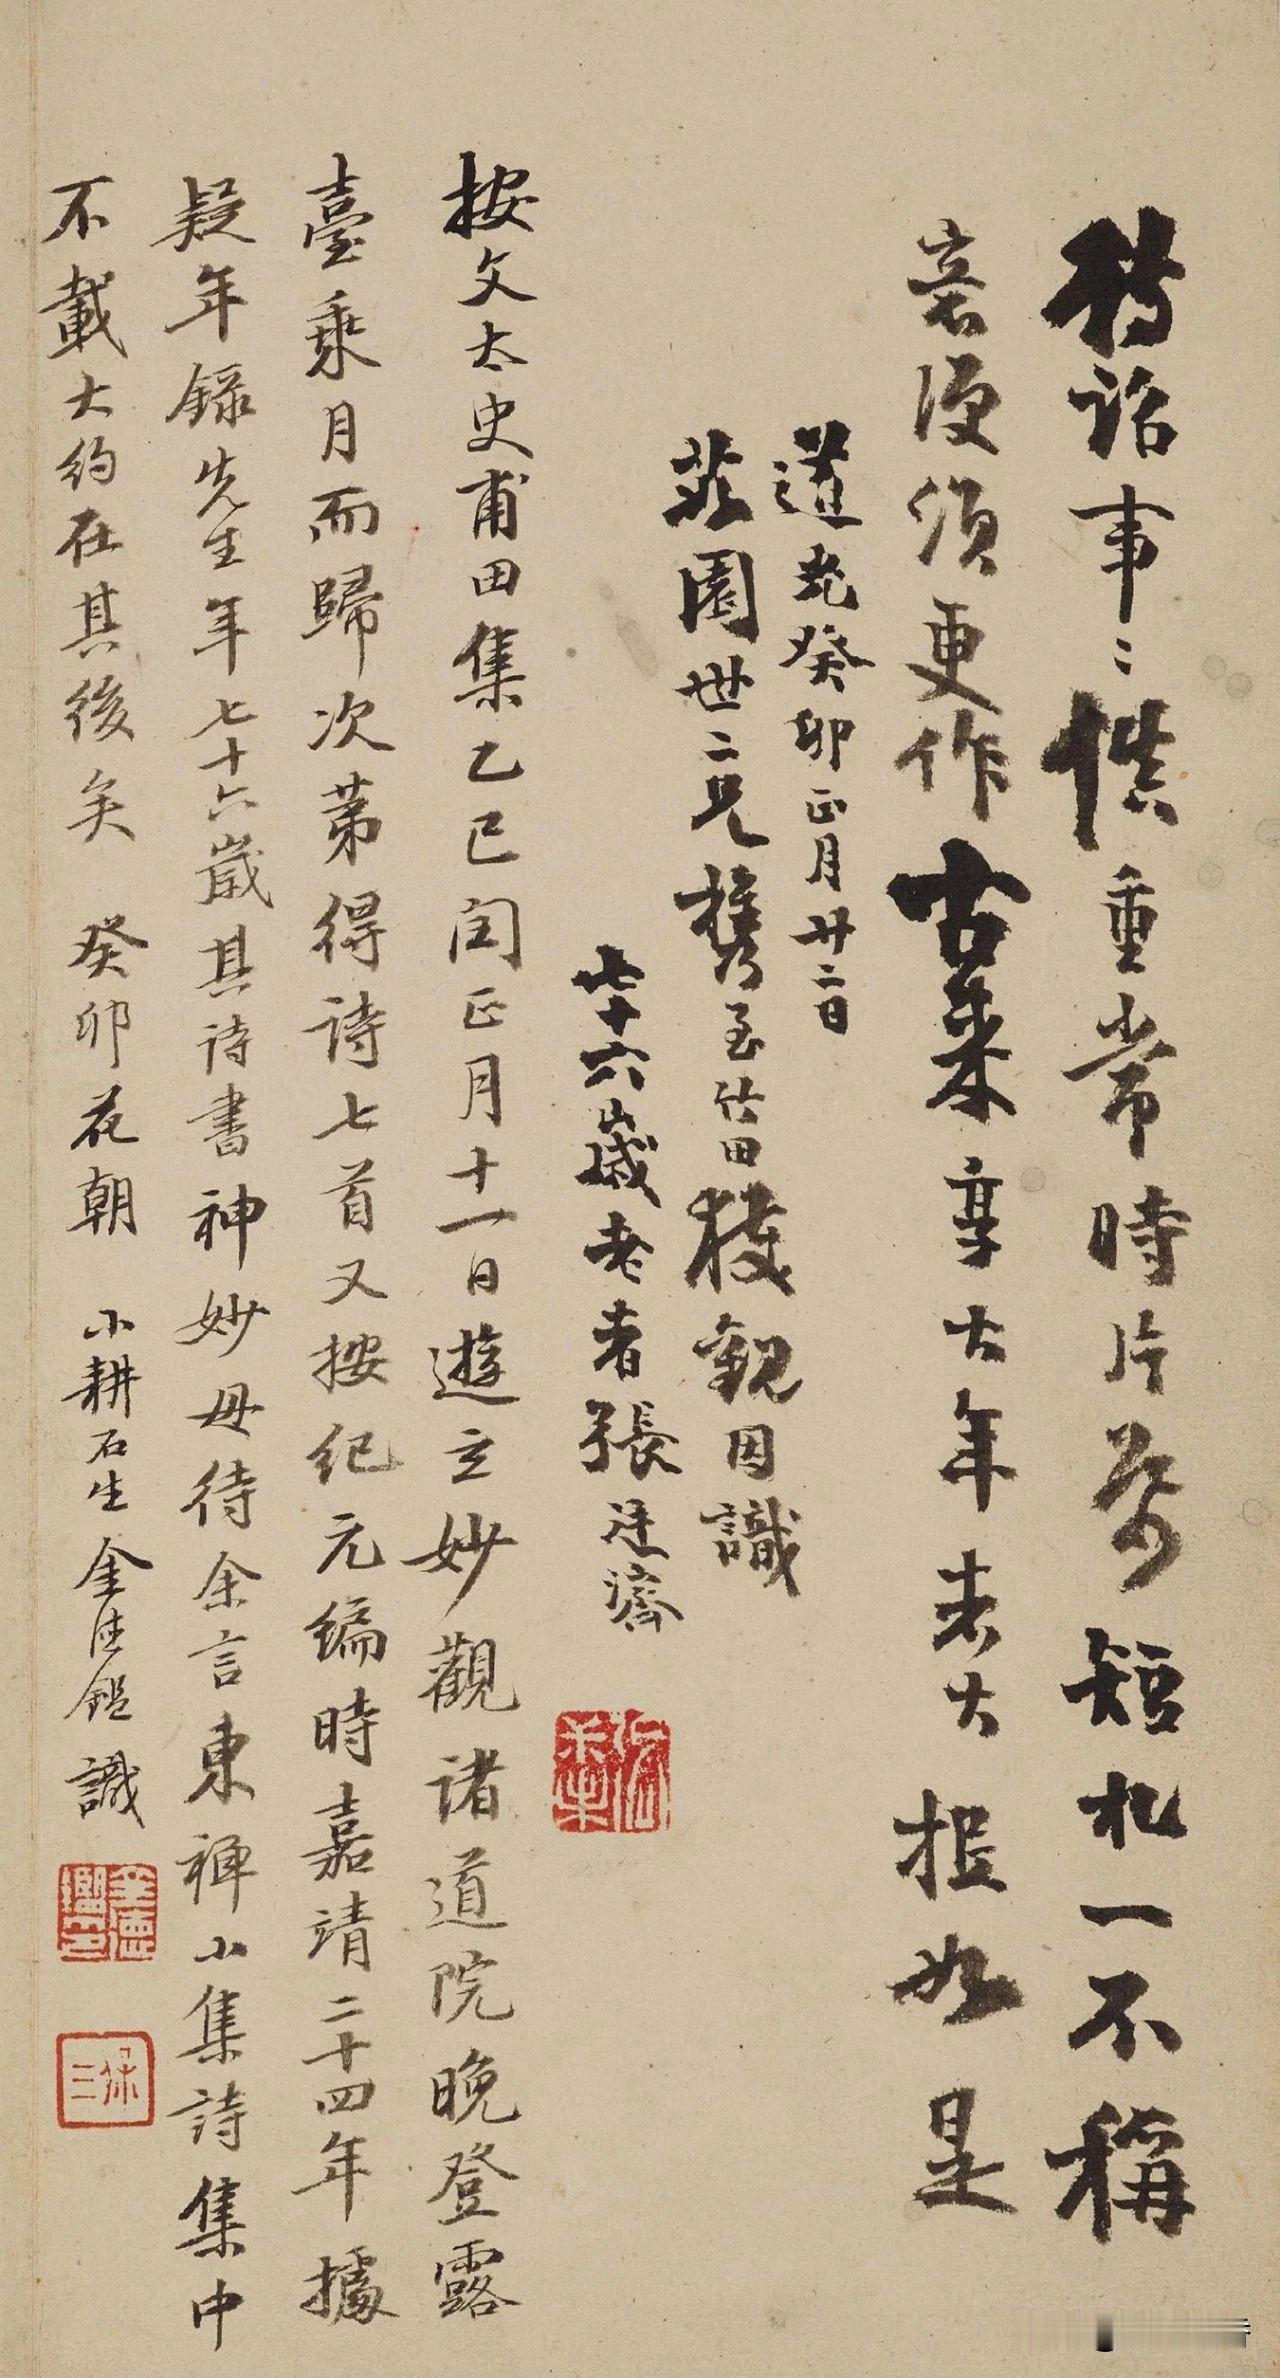 詒事〻慎重常時片番短札一不稱
意便須更作古来享大年者大抵如是
道光癸卯正月廿二日
蔬園世二兄攜至竹田獲觀因識
七十六歲老者張廷濟
按文太史甫田集乙巳閏正月十一日遊玄妙觀諸道院晚登露
臺乘月而歸次第得詩七首又按紀元編時嘉靖二十四年據
疑年錄先生年七十六歲其詩書神妙毋待余言東禪小集詩集中
不載大約在其後矣 癸卯花朝 小耕石生金德鑑識